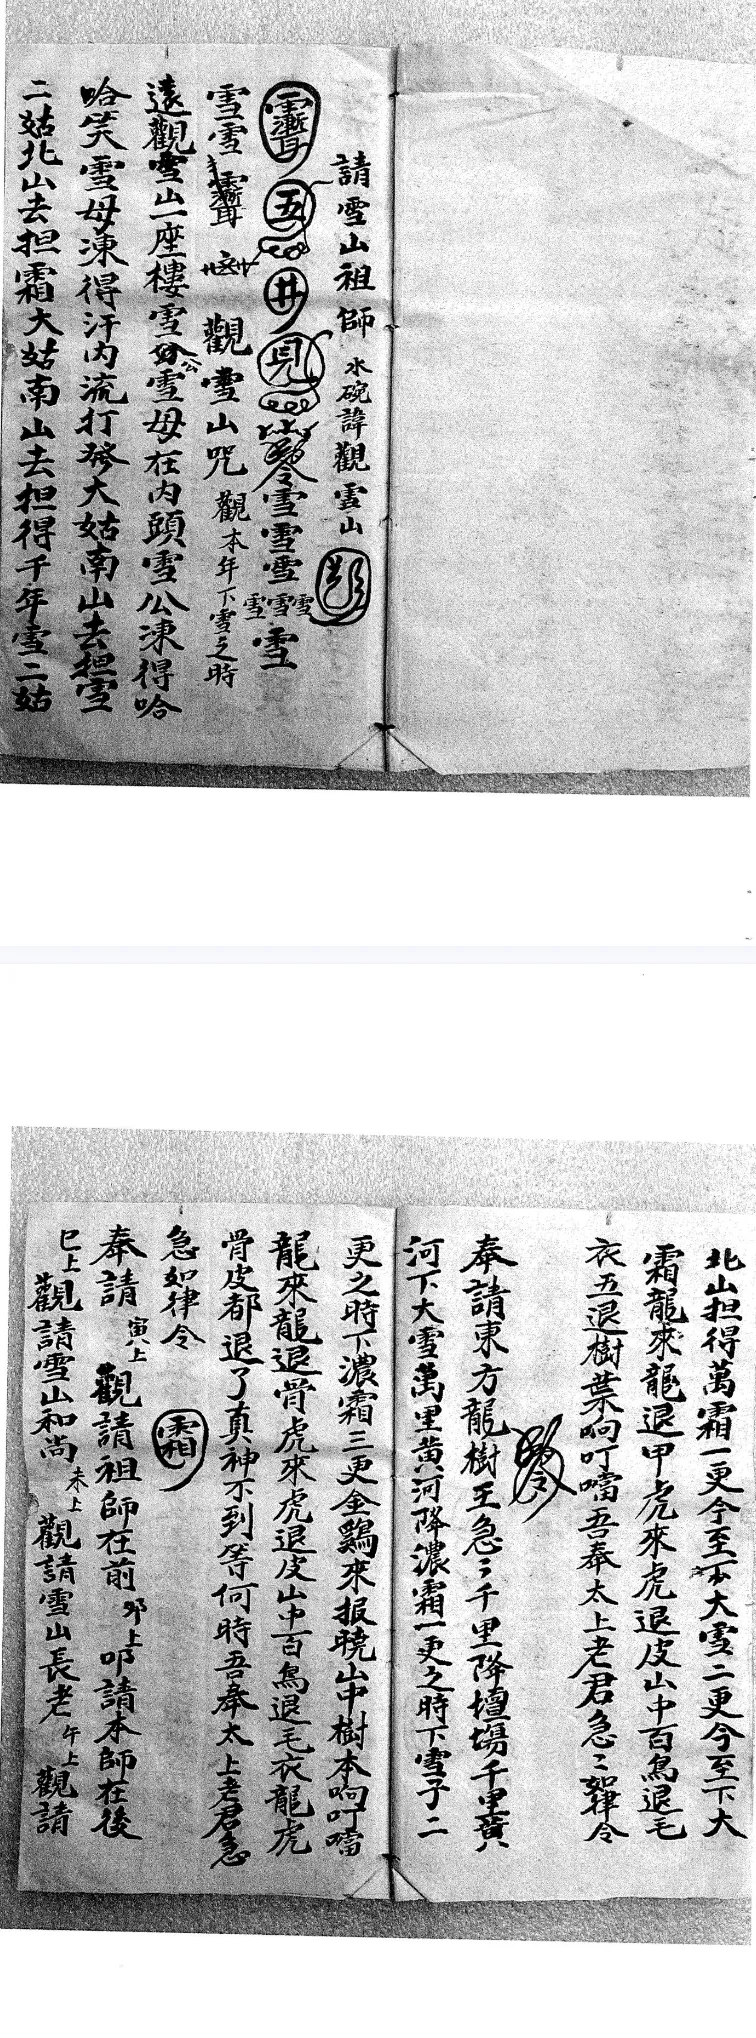 請雪山祖師 水碗諱觀雪山
五 井 見 雪雪雪 雪雪雪 雪
雪雪 觀雪山咒 觀本年下雪之時
遠觀雪山一座樓雪公雪母在内頭雪公凍得哈
哈笑雪母凍得汗内流打發大姑南山去担雪
二姑北山去担霜大姑南山去担得千年雪二姑
北山担得萬霜一更今至下大雪二更今至下大
霜龍來龍退甲虎來虎退皮山中百鳥退毛
衣五退樹葉响叮噹吾奉太上老君急〻如律令
奉請東方龍樹王急〻千里降壇場千里黄
河下大雪萬里黄河降濃霜一更之時下雪子二
更之時下濃霜三更金鷄來报曉山中樹本响叮噹
龍來龍退骨虎來虎退皮山中百鳥退毛衣龍虎
骨皮都退了真神不到等何時吾奉太上老君急
急如律令 霜
奉請 寅上 觀請祖師在前 卯上 叩請本師在後
巳上 觀請雪山和尚 未上 觀請雪山長老 午上 觀請